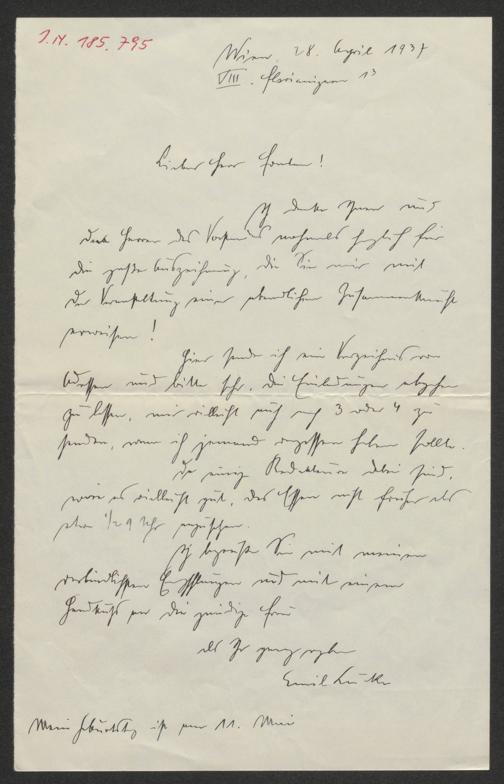 I.N. 185.795
Wien, 28. April 1937
VIII. Florianigasse 13
Lieber Herr !
Ich danke Ihnen und
den Herren des nochmals herzlich für
die große Auszeichnung, die Sie mir mit
der Veranstaltung einer abendlichen Zusammenkunft
erweisen !
Hier sende ich ein Verzeichnis von
Adressen und bitte sehr, die Einladungen abgehen
zu lassen, mir vielleicht auch noch 3 oder 4 zu
senden, wenn ich jemand vergessen haben sollte.
Da einige Redakteure dabei sind,
wäre es vielleicht gut, das Essen nicht früher als
etwa ½ 9 Uhr anzusetzen.
Ich begrüße Sie mit meinen
verbindlichsten Empfehlungen und mit einem
Handkuß an die gnädige Frau
als Ihr ganz ergebener
Emil Lucka
Mein Geburtstag ist am 11. Mai